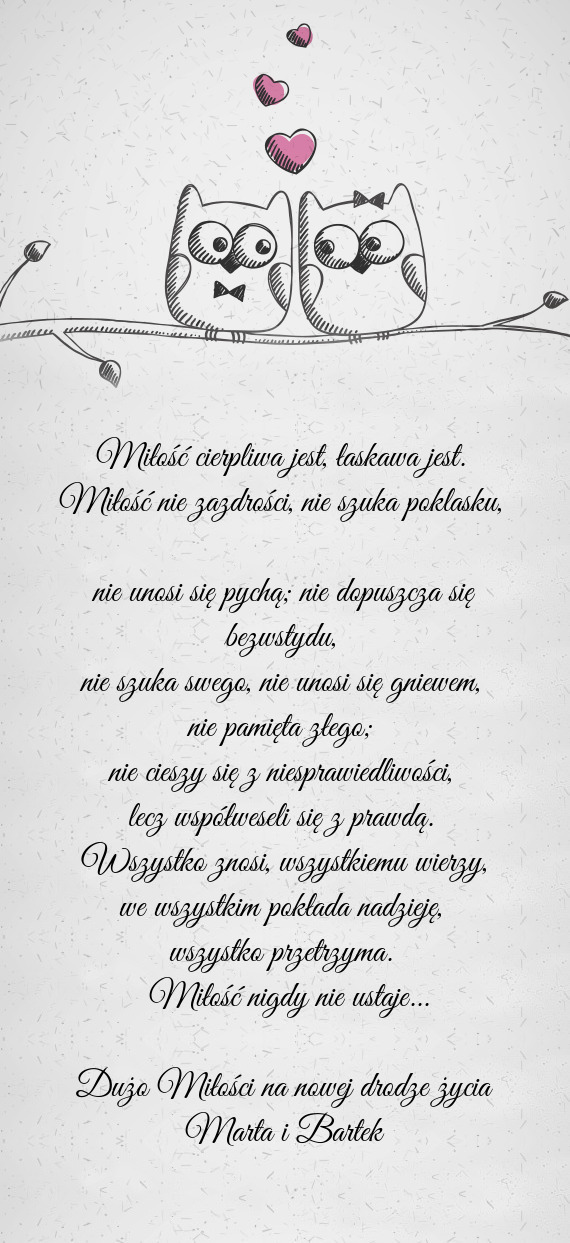 Miłość cierpliwa jest, łaskawa jest.
Miłość nie zazdrości, nie szuka poklasku,
nie unosi się pychą; nie dopuszcza się
bezwstydu,
nie szuka swego, nie unosi się gniewem,
nie pamięta złego;
nie cieszy się z niesprawiedliwości,
lecz współweseli się z prawdą.
Wszystko znosi, wszystkiemu wierzy,
we wszystkim pokłada nadzieję,
wszystko przetrzyma.
Miłość nigdy nie ustaje...
Dużo Miłości na nowej drodze życia
Marta i Bartek